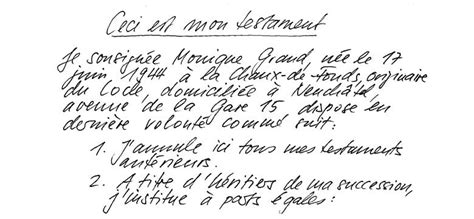 Ceci est mon testament
Je sousignée Monique Grand, née le 17
juin 1944 à la Chaux-de-fonds, originaire
du Locle, domiciliée à Neuchâtel,
avenue de la Gare 15 dispose en
dernière volonté comme suit:
1. J'annule ici tous mes testaments
antérieurs.
2. A titre d'héritiers de ma succession,
j'institue à parts égales: